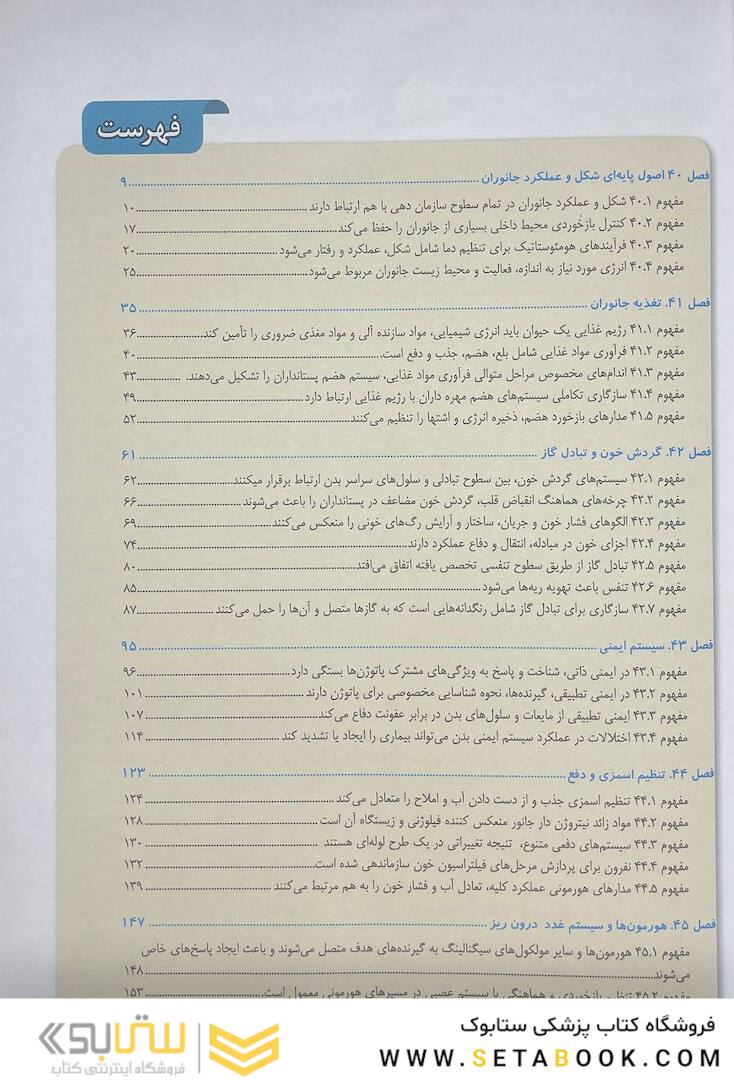 فهرست
فصل ۴۰ اصول پایه‌ای شکل و عملکرد جانوران ........ ۹
مفهوم ۴۰.۱ شکل و عملکرد جانوران در تمام سطوح سازمان دهی با هم ارتباط دارند ........ ۱۰
مفهوم ۴۰.۲ کنترل بازخوردی محیط داخلی بسیاری از جانوران را حفظ می‌کند ........ ۱۷
مفهوم ۴۰.۳ فرآیندهای هومئوستاتیک برای تنظیم دما شامل شکل، عملکرد و رفتار می‌شود ........ ۲۰
مفهوم ۴۰.۴ انرژی مورد نیاز به اندازه، فعالیت و محیط زیست جانوران مربوط می‌شود ........ ۲۵
فصل ۴۱. تغذیه جانوران ........ ۳۵
مفهوم ۴۱.۱ رژیم غذایی یک حیوان باید انرژی شیمیایی، مواد سازنده آلی و مواد مغذی ضروری را تأمین کند ........ ۳۶
مفهوم ۴۱.۲ فرآوری مواد غذایی شامل بلع، هضم، جذب و دفع است ........ ۴۰
مفهوم ۴۱.۳ اندام‌های مخصوص مراحل متوالی فرآوری مواد غذایی، سیستم هضم پستانداران را تشکیل می‌دهند. ........ ۴۳
مفهوم ۴۱.۴ سازگاری تکاملی سیستم‌های هضم مهره داران با رژیم غذایی ارتباط دارد ........ ۴۹
مفهوم ۴۱.۵ مدارهای بازخورد هضم، ذخیره انرژی و اشتها را تنظیم می‌کنند ........ ۵۲
فصل ۴۲. گردش خون و تبادل گاز ........ ۶۱
مفهوم ۴۲.۱ سیستم‌های گردش خون، بین سطوح تبادلی و سلول‌های سراسر بدن ارتباط برقرار میکنند ........ ۶۲
مفهوم ۴۲.۲ چرخه‌های هماهنگ انقباض قلب، گردش خون مضاعف در پستانداران را باعث می‌شوند ........ ۶۶
مفهوم ۴۲.۳ الگوهای فشار خون و جریان، ساختار و آرایش رگ‌های خونی را منعکس می‌کنند ........ ۶۹
مفهوم ۴۲.۴ اجزای خون در مبادله، انتقال و دفاع عملکرد دارند ........ ۷۴
مفهوم ۴۲.۵ تبادل گاز از طریق سطوح تنفسی تخصص یافته اتفاق می‌افتد ........ ۸۰
مفهوم ۴۲.۶ تنفس باعث تهویه ریه‌ها می‌شود ........ ۸۵
مفهوم ۴۲.۷ سازگاری برای تبادل گاز شامل رنگدانه‌هایی است که به گازها متصل و آن‌ها را حمل می‌کنند ........ ۸۷
فصل ۴۳. سیستم ایمنی ........ ۹۵
مفهوم ۴۳.۱ در ایمنی ذاتی، شناخت و پاسخ به ویژگی‌های مشترک پاتوژن‌ها بستگی دارد ........ ۹۶
مفهوم ۴۳.۲ در ایمنی تطبیقی، گیرنده‌ها، نحوه شناسایی مخصوصی برای پاتوژن دارند ........ ۱۰۱
مفهوم ۴۳.۳ ایمنی تطبیقی از مایعات و سلول‌های بدن در برابر عفونت دفاع می‌کند ........ ۱۰۷
مفهوم ۴۳.۴ اختلالات در عملکرد سیستم ایمنی بدن می‌تواند بیماری را ایجاد یا تشدید کند ........ ۱۱۴
فصل ۴۴. تنظیم اسمزی و دفع ........ ۱۲۳
مفهوم ۴۴.۱ تنظیم اسمزی جذب و از دست دادن آب و املاح را متعادل می‌کند ........ ۱۲۴
مفهوم ۴۴.۲ مواد زائد نیتروژن دار جانور منعکس کننده فیلوژنی و زیستگاه آن است ........ ۱۲۸
مفهوم ۴۴.۳ سیستم‌های دفعی متنوع، نتیجه تغییراتی در یک طرح لوله‌ای هستند ........ ۱۳۰
مفهوم ۴۴.۴ نفرون برای پردازش مرحل‌های فیلتراسیون خون سازماندهی شده است ........ ۱۳۲
مفهوم ۴۴.۵ مدارهای هورمونی عملکرد کلیه، تعادل آب و فشار خون را به هم مرتبط می‌کنند ........ ۱۳۹
فصل ۴۵. هورمون‌ها و سیستم غدد درون ریز ........ ۱۴۷
مفهوم ۴۵.۱ هورمون‌ها و سایر مولکول‌های سیگنالینگ به گیرنده‌های هدف متصل می‌شوند و باعث ایجاد پاسخ‌های خاص
می‌شوند ........ ۱۴۸
مفهوم ۴۵.۲ تنظیم بازخوردی و هماهنگی با سیستم عصبی در مسیرهای هورمونی معمول است ........ ۱۵۳
فروشگاه کتاب پزشکی ستابوک
WWW.SETABOOK.COM
ستابوک
فروشگاه اینترنتی کتاب